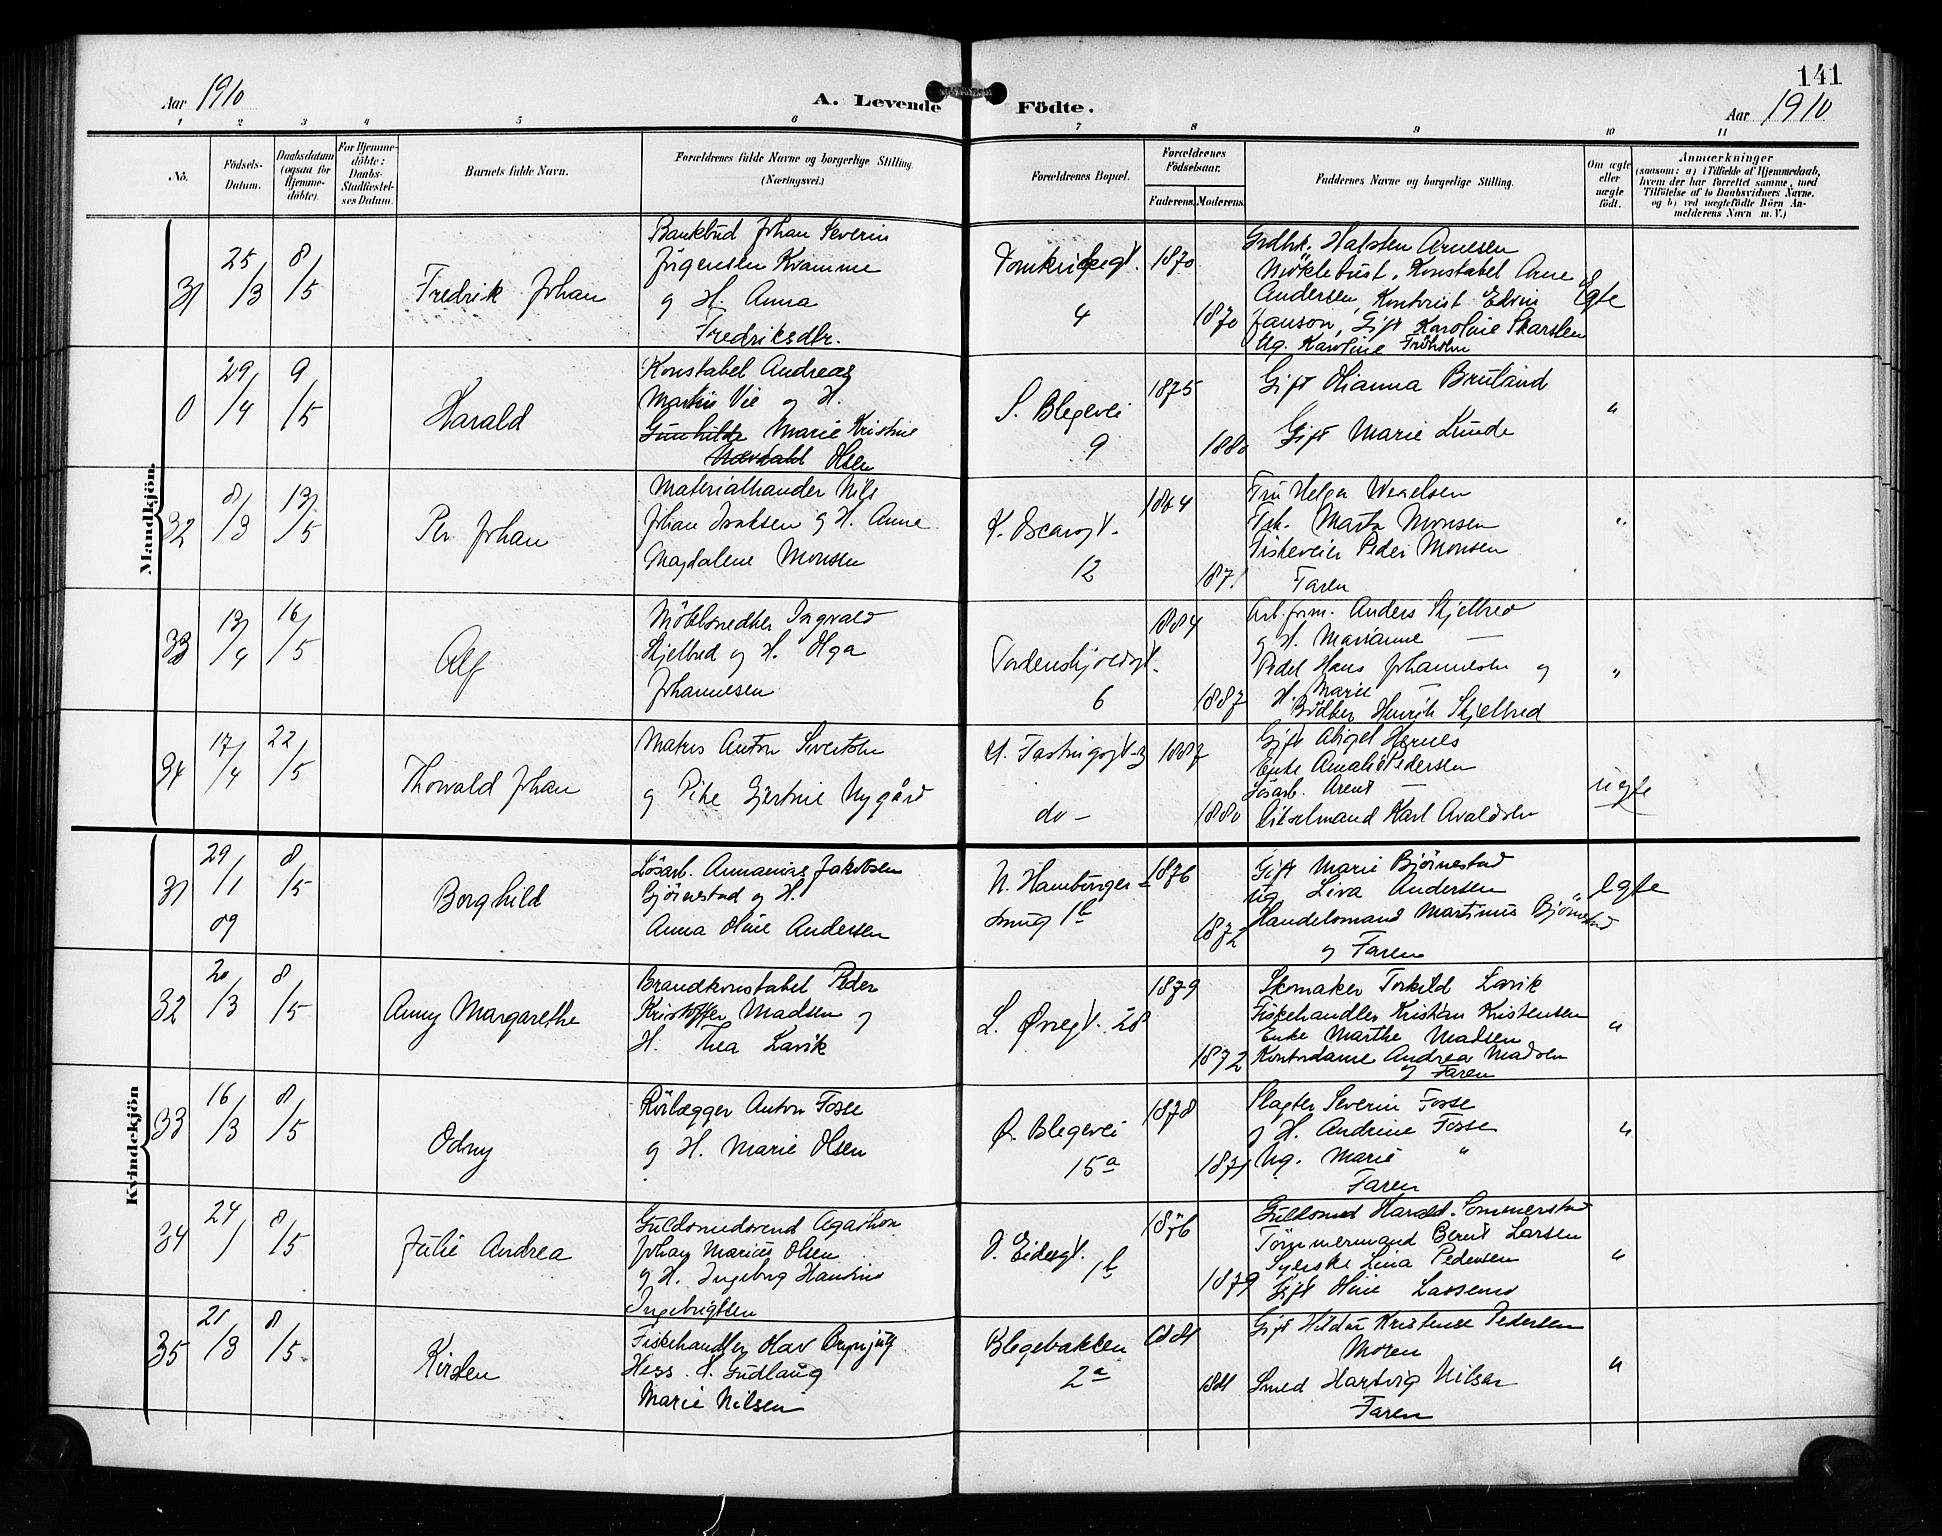 141
Aar 1910
A. Levende Födte.
Aar 1910
1 2 3 4 5 6 7 8 9 10 11
No.
Födsels-
Datum.
Daabsdatum
(ogsaa for
Hjemme-
döbte).
For Hjemme-
döbte:
Daabs-
Stadfæstel-
ses Datum.
Barnets fulde Navn.
Forældrenes fulde Navne og borgerlige Stilling.
(Næringsvei.)
Forældrenes Bopæl.
Forældrenes
Födselsaar.
Faderens. Moderens.
Faddernes Navne og borgerlige Stilling.
Om ægte
eller
uægte
født.
Anmærkninger
(saasom: a) i Tilfælde af Hjemmedaab,
hvem der har forrettet samme, med
Tilföielse af to Daabsvidners Navne.
og b) ved uægtefödte Börn An-
melderens Navn m. V.)
Mandkjön.
31
25/3
8/5
Fredrik Johan
Bankbud Johan Severin
Jörgensen Kvamme
og H. Anna
Fredriksdtr.
Domkirkegt.
4
1870
1870
Halsten Arnesen
Mökletust, Konstabel Arne
Andersen, Kontorist Edvin
Janson, Gift Karoline Skarsten
Ug. Karoline Fröholm
Egte
0
29/4
9/5
Harald
Konstabel Andreas
Martin Vie og H.
Gunhilde Marie Kristine
Olsen
S. Blegevei
9
1875
1880
Gift Hanna Bruland
Gift Marie Lunde
"
32
8/3
13/5
Per Johan
Materialhander Nils
Johan Isaksen og H. Anne
Magdalene Monsen
K. Oscarsgt.
12
1864
1871
Fru Helga
Marta Monsen
Peder Monsen
Faren
"
33
13/4
16/5
Alf
Möbelsnedker Ingvald
Skjelbred og H. Olga
Johannesen
Tordenskjoldsgt.
6
1884
1887
Arb.form. Anders Skjelbred
og H. Marianne —
Pedel Hans Johannesen og
H. Marie —
Bödker Henrik Skjelbred
"
34
17/4
22/5
Thorvald Johan
Matros Anton Sivertsen
og Pike Gjertine Nygård
do —
1887
1880
Gift Abigel Hernes
Enke Amalie Pedersen
Lösarb. Arent —
Karl Avaldsen
uegte
Kvindekjön
31
29/1
09
8/5
Borghild
Lösarb. Annanias Jakobsen
Bjørnestad og H.
Anna Oline Andersen
N. Hamburger-
smug 1b
1876
1872
Gift Marie Bjørnestad
Ug. Lina Andersen
Handelsmand Martinus Bjørnestad
og Faren
Egte
32
20/3
8/5
Anny Margarethe
Brandkonstabel Peder
Kristoffer Madsen og
H. Thea Lavik
L. Øvregt. 28
1879
1872
Skomaker Torkild Lavik
Fiskehandler Kristian Kristensen
Enke Marthe Madsen
Kontordame Andrea Madsen
og Faren
"
33
16/3
8/5
Odny
Rörlægger Anton Fosse
og H. Marie Olsen
Ø. Blegevei
15a
1878
1871
Slagter Severin Fosse
og H. Andrine Fosse
Ug. Marie "
Faren
"
34
24/1
8/5
Julie Andrea
Guldsmedsvend Agathon
Johan Marius Olsen
og H. Ingeborg Hantine
Ingebrigtsen
1b
1876
1879
Guldsmed Harald Sommerstad
Tömmermand Bernt Larsen
Syerske Lina Pedersen
Gift Oline Lassens
"
35
21/3
8/5
Kirsten
Fiskehandler Olav
Hess. H. Gudlaug
Marie Nilsen
Blegebakken
2a
1881
1881
Gift Hilda Kristense Pedersen
Moren
Smed Hartvig Nilsen
Faren
"